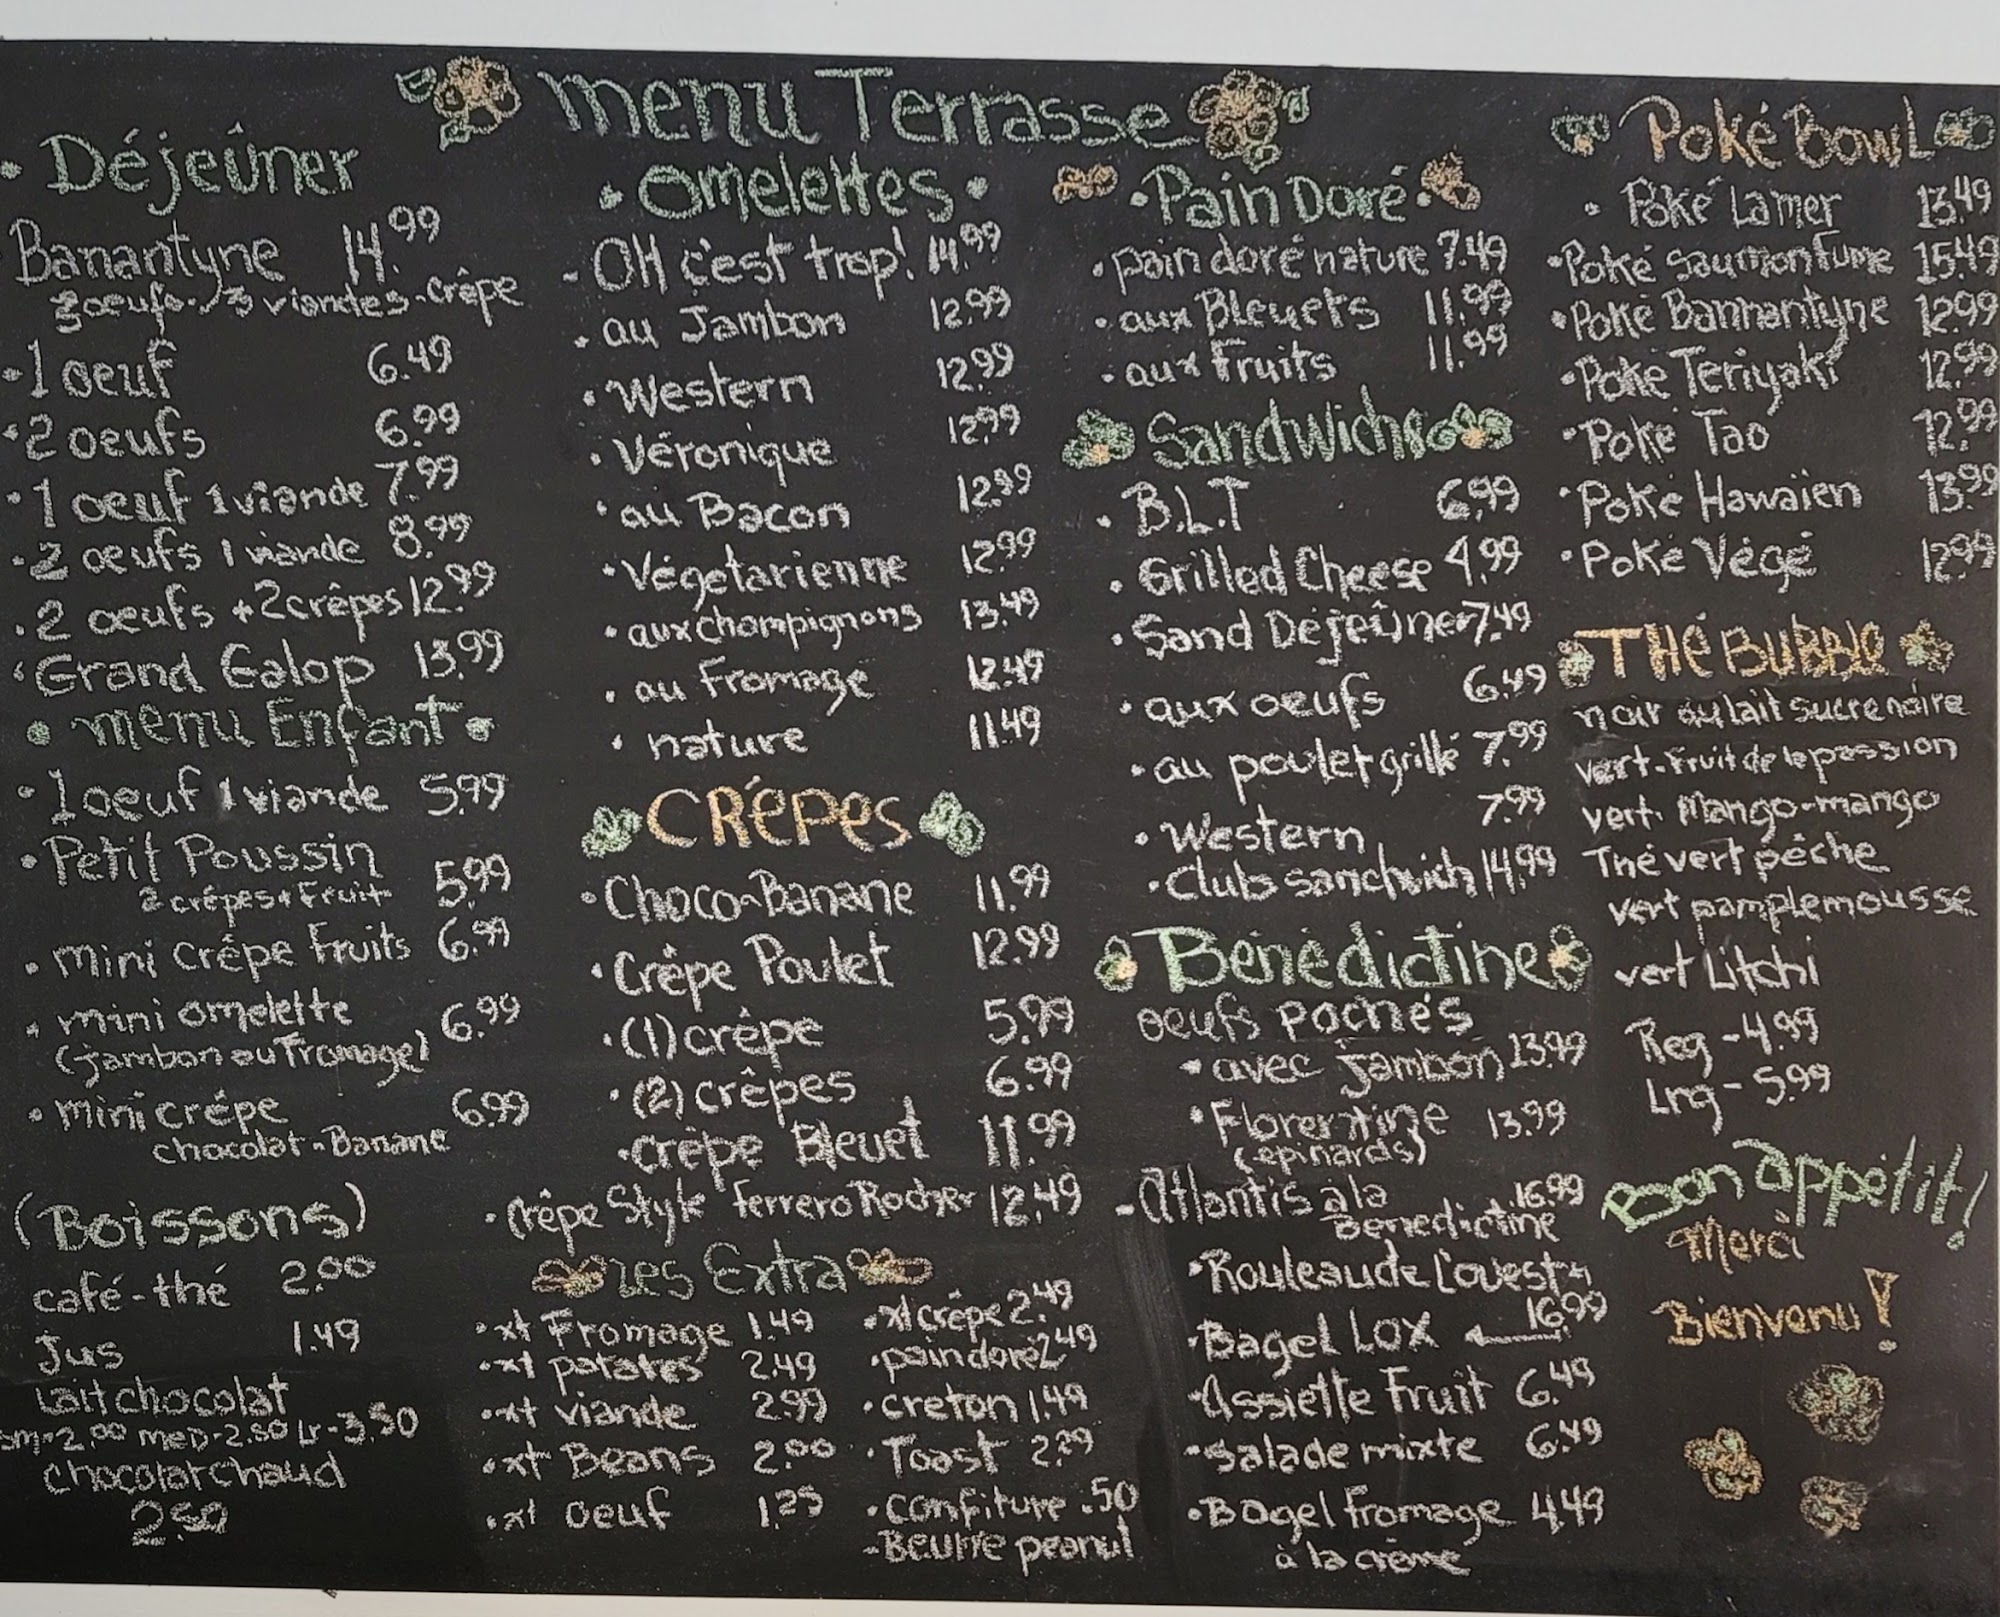 menu Terrasse
• Déjeûner
Banantyne 14.99
3 oeufs - 3 viandes - crêpe
• 1 oeuf 6.49
• 2 oeufs 6.99
• 1 oeuf 1 viande 7.99
• 2 oeufs 1 viande 8.99
• 2 oeufs + 2 crêpes 12.99
• Grand Galop 13.99
• menu Enfant •
• 1 oeuf 1 viande 5.99
• Petit Poussin
2 crêpes + Fruit 5.99
• mini crêpe Fruits 6.99
• mini omelette 6.99
(jambon ou Fromage)
• mini crêpe 6.99
chocolat - Banane
(Boissons)
café - thé 2.00
Jus 1.49
Lait chocolat
sm - 2.00 meD - 2.50 Lr - 3.50
chocolat chaud
2.50
• Omelettes •
- OH c'est trop! 14.99
• au Jambon 12.99
• Western 12.99
• Véronique 12.99
• au Bacon 12.99
• Végetarienne 12.99
• aux champignons 13.49
• au Fromage 12.49
• nature 11.49
CRÊPES
• Choco-Banane 11.99
• Crêpe Poulet 12.99
• (1) crêpe 5.99
• (2) crêpes 6.99
• crêpe Bleuet 11.99
• crêpe Style Ferrero Rocher 12.49
Les Extra
• xt Fromage 1.49
• xt patates 2.49
• xt viande 2.99
• xt Beans 2.00
• xt oeuf 1.25
• xt crêpe 2.49
• pain doré 2.49
• creton 1.49
• Toast 2.29
• confiture .50
- Beurre peanut
• Pain Doré •
• pain doré nature 7.49
• aux Bleuets 11.99
• aux Fruits 11.99
Sandwichs
• B.L.T 6.99
• Grilled Cheese 4.99
• Sand Déjeûner 7.49
• aux oeufs 6.49
• au poulet grillé 7.99
• Western 7.99
• Club sandwich 14.99
Bénédictine
oeufs pochés
• avec jambon 13.99
• Florentine 13.99
(épinards)
- Atlantis à la 16.99
Bénédictine
• Rouleau de L'ouest
• Bagel LOX 16.99
• Assiette Fruit 6.49
• Salade mixte 6.49
• Bagel fromage 4.49
à la crème
Poké Bowl
• Poké Lamer 13.49
• Poké saumon fumé 15.49
• Poké Bannantyne 12.99
• Poké Teriyaki 12.99
• Poké Tao 12.99
• Poké Hawaïen 13.99
• Poké Végé 12.99
THÉ BUBBLE
noir au lait sucre noire
vert - fruit de la passion
vert. Mango-mango
Thé vert pêche
vert pamplemousse
vert Litchi
Reg - 4.99
Lrg - 5.99
Bon appétit!
Merci
Bienvenu!